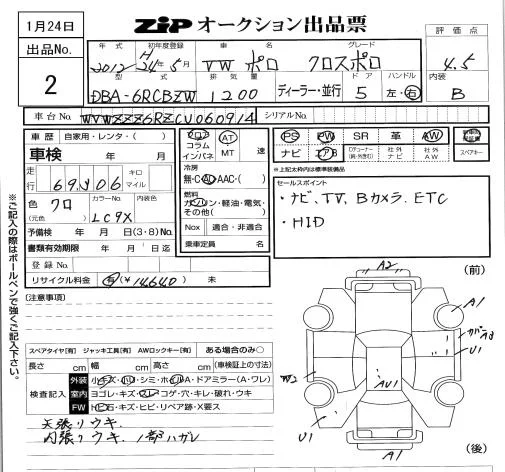 1月24日
ZIP オークション出品票
出品No.
2
評価点
4.5
内装
B
年式 初年度登録 車名 グレード
2012 H24年5月 VW ポロ クロスポロ
型式 排気量 ドア ハンドル
DBA-6RCBZW 1200 ディーラー・並行 5 左・右
車台No. WVWZZZ6RZCU060914 シリアルNo.
車歴 自家用・レンタ・( )
車検 年 月
走行 69,906 キロ マイル
色 クロ (元色) カラーNo. LC9X 内装色
予備検 年 月 日(3・8)No.
書類有効期限 年 月 日迄
登録No.
リサイクル料金 有(¥14640) 未
フロア コラム インパネ AT MT 速
冷房
無・C・AC・AAC・( )
燃料
ガソリン・軽油・電気・その他( )
Nox 適合・非適合
乗車定員 名
PS PW SR 革 AW
ナビ エアB 社外ナビ 社外AW
スペアキー
*上記太枠内は標準装備品
セールスポイント
・ナビ、TV、Bカメラ、ETC
・HID
※ご記入の際はボールペンで強くご記入下さい。
(注意事項)
スペアタイヤ[有] ジャッキ工具[有] AWロックキー[有] ある場合のみ○
長さ cm 幅 cm 高さ cm (車検証上の寸法)
検査記入
外装 小キズ・凹・シミ・ホイルA・ドアミラー(A・ワレ)
室内 ヨゴレ・キズ・スレ・コゲ・穴・キレ・破れ・ウキ
FW トビ石・キズ・ヒビ・リペア跡・X要ス
天張リウキ
内張リウキ、1部ハガレ
(前)
A2
A1
カバーA3
U1
AU1
W2
U1
A1
(後)